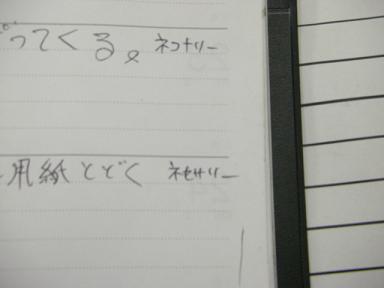 ってくる。ネコナリー
用紙とどく ネセサリー